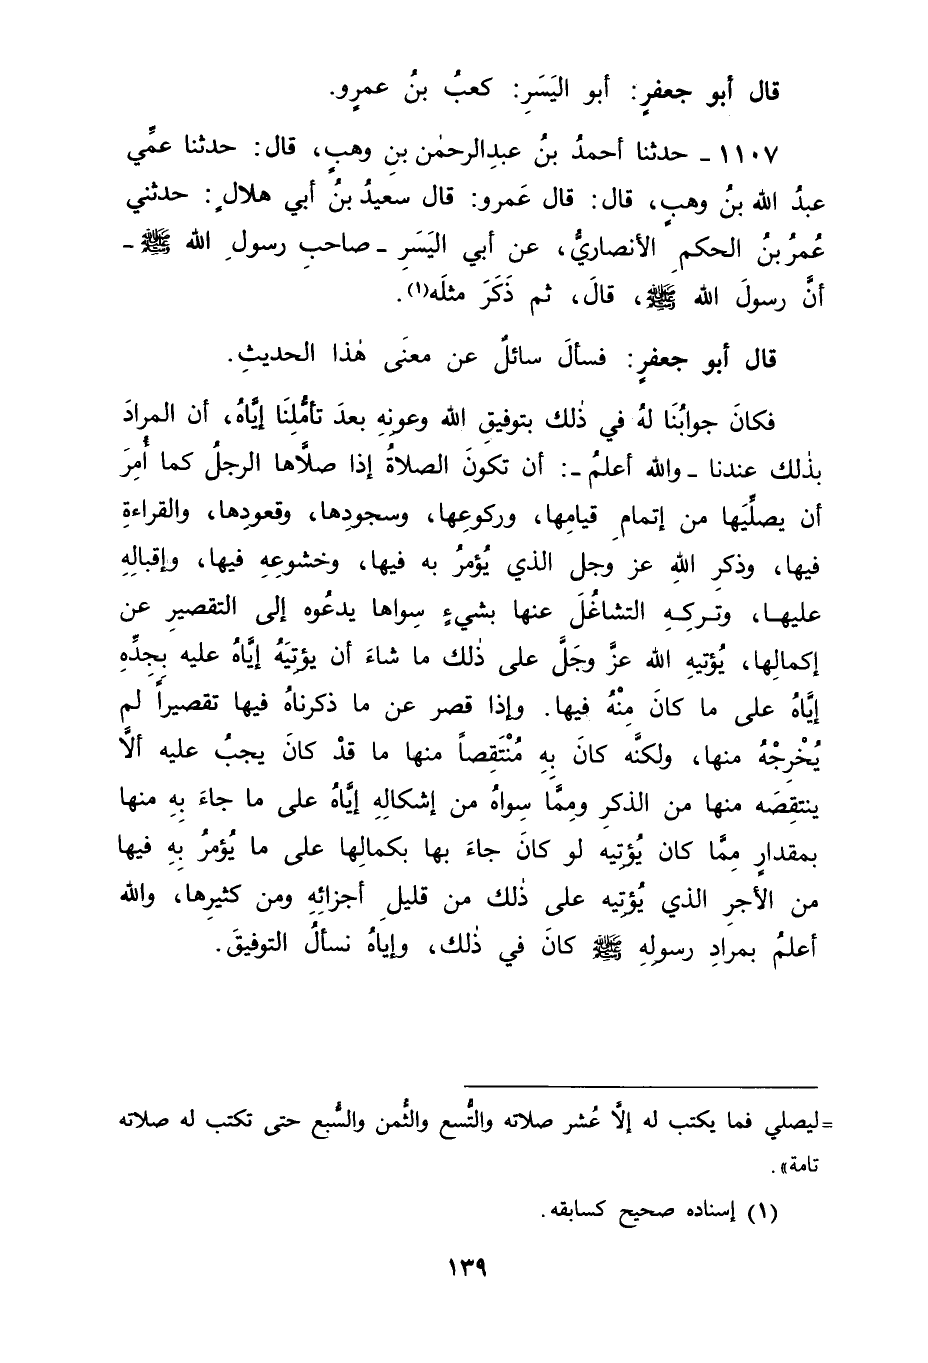 قال أبو جعفرٍ: أبو اليَسَرِ: كعبُ بنُ عمرٍو.
١١٠٧ ـ حدثنا أحمدُ بنُ عبدِالرحمٰن بنِ وهبٍ، قال: حدثنا عمِّي
عبدُ الله بنُ وهبٍ، قال: قال عَمرو: قال سعيدُ بنُ أبي هلالٍ: حدثني
عُمرُ بنُ الحكمِ الأنصاريُّ، عن أبي اليَسَرِ ـ صاحبِ رسولِ الله ﷺ ـ
أنَّ رسولَ الله ﷺ، قالَ، ثم ذَكَرَ مثلَه(١).
قال أبو جعفرٍ: فسألَ سائلٌ عن معنَى هٰذا الحديثِ.
فكانَ جوابُنَا لهُ في ذٰلك بتوفيقِ الله وعونِهِ بعدَ تأمُّلِنَا إيَّاهُ، أن المرادَ
بذٰلك عندنا ـ والله أعلمُ ـ: أن تكونَ الصلاةُ إذا صلَّاها الرجلُ كما أُمِرَ
أن يصلِّيَها من إتمامِ قيامِها، وركوعِها، وسجودِها، وقعودِها، والقراءةِ
فيها، وذكرِ اللهِ عز وجل الذي يُؤمرُ به فيها، وخشوعِهِ فيها، وإقبالِهِ
عليهـا، وتـركِـهِ التشاغُلَ عنها بشيءٍ سِواها يدعُوه إلى التقصيرِ عن
إكمالِها، يُؤتيهِ الله عزَّ وجَلَّ على ذٰلك ما شاءَ أن يؤتِيَهُ إيَّاهُ عليه بِجِدِّهِ
إيَّاهُ على ما كانَ مِنْهُ فيها. وإذا قصر عن ما ذكرناهُ فيها تقصيراً لم
يُخْرِجْهُ منها، ولكنَّه كانَ بِهِ مُنْتَقِصاً منها ما قدْ كانَ يجبُ عليه ألَّا
ينتقِصَه منها من الذكرِ ومِمَّا سِواهُ من إشكالِهِ إيَّاهُ على ما جاءَ بِهِ منها
بمقدارٍ مِمَّا كان يُؤتِيه لو كانَ جاءَ بها بكمالِها على ما يُؤمرُ بِهِ فيها
من الأجرِ الذي يُؤتِيه على ذٰلك من قليلِ أجزائِهِ ومن كثيرِها، والله
أعلمُ بمرادِ رسولِهِ ﷺ كانَ في ذٰلك، وإياهُ نسألُ التوفيقَ.
=ليصلي فما يكتب له إلَّا عُشر صلاته والتُّسع والثُّمن والسُّبع حتى تكتب له صلاته
تامة».
(١) إسناده صحيح كسابقه.
١٣٩